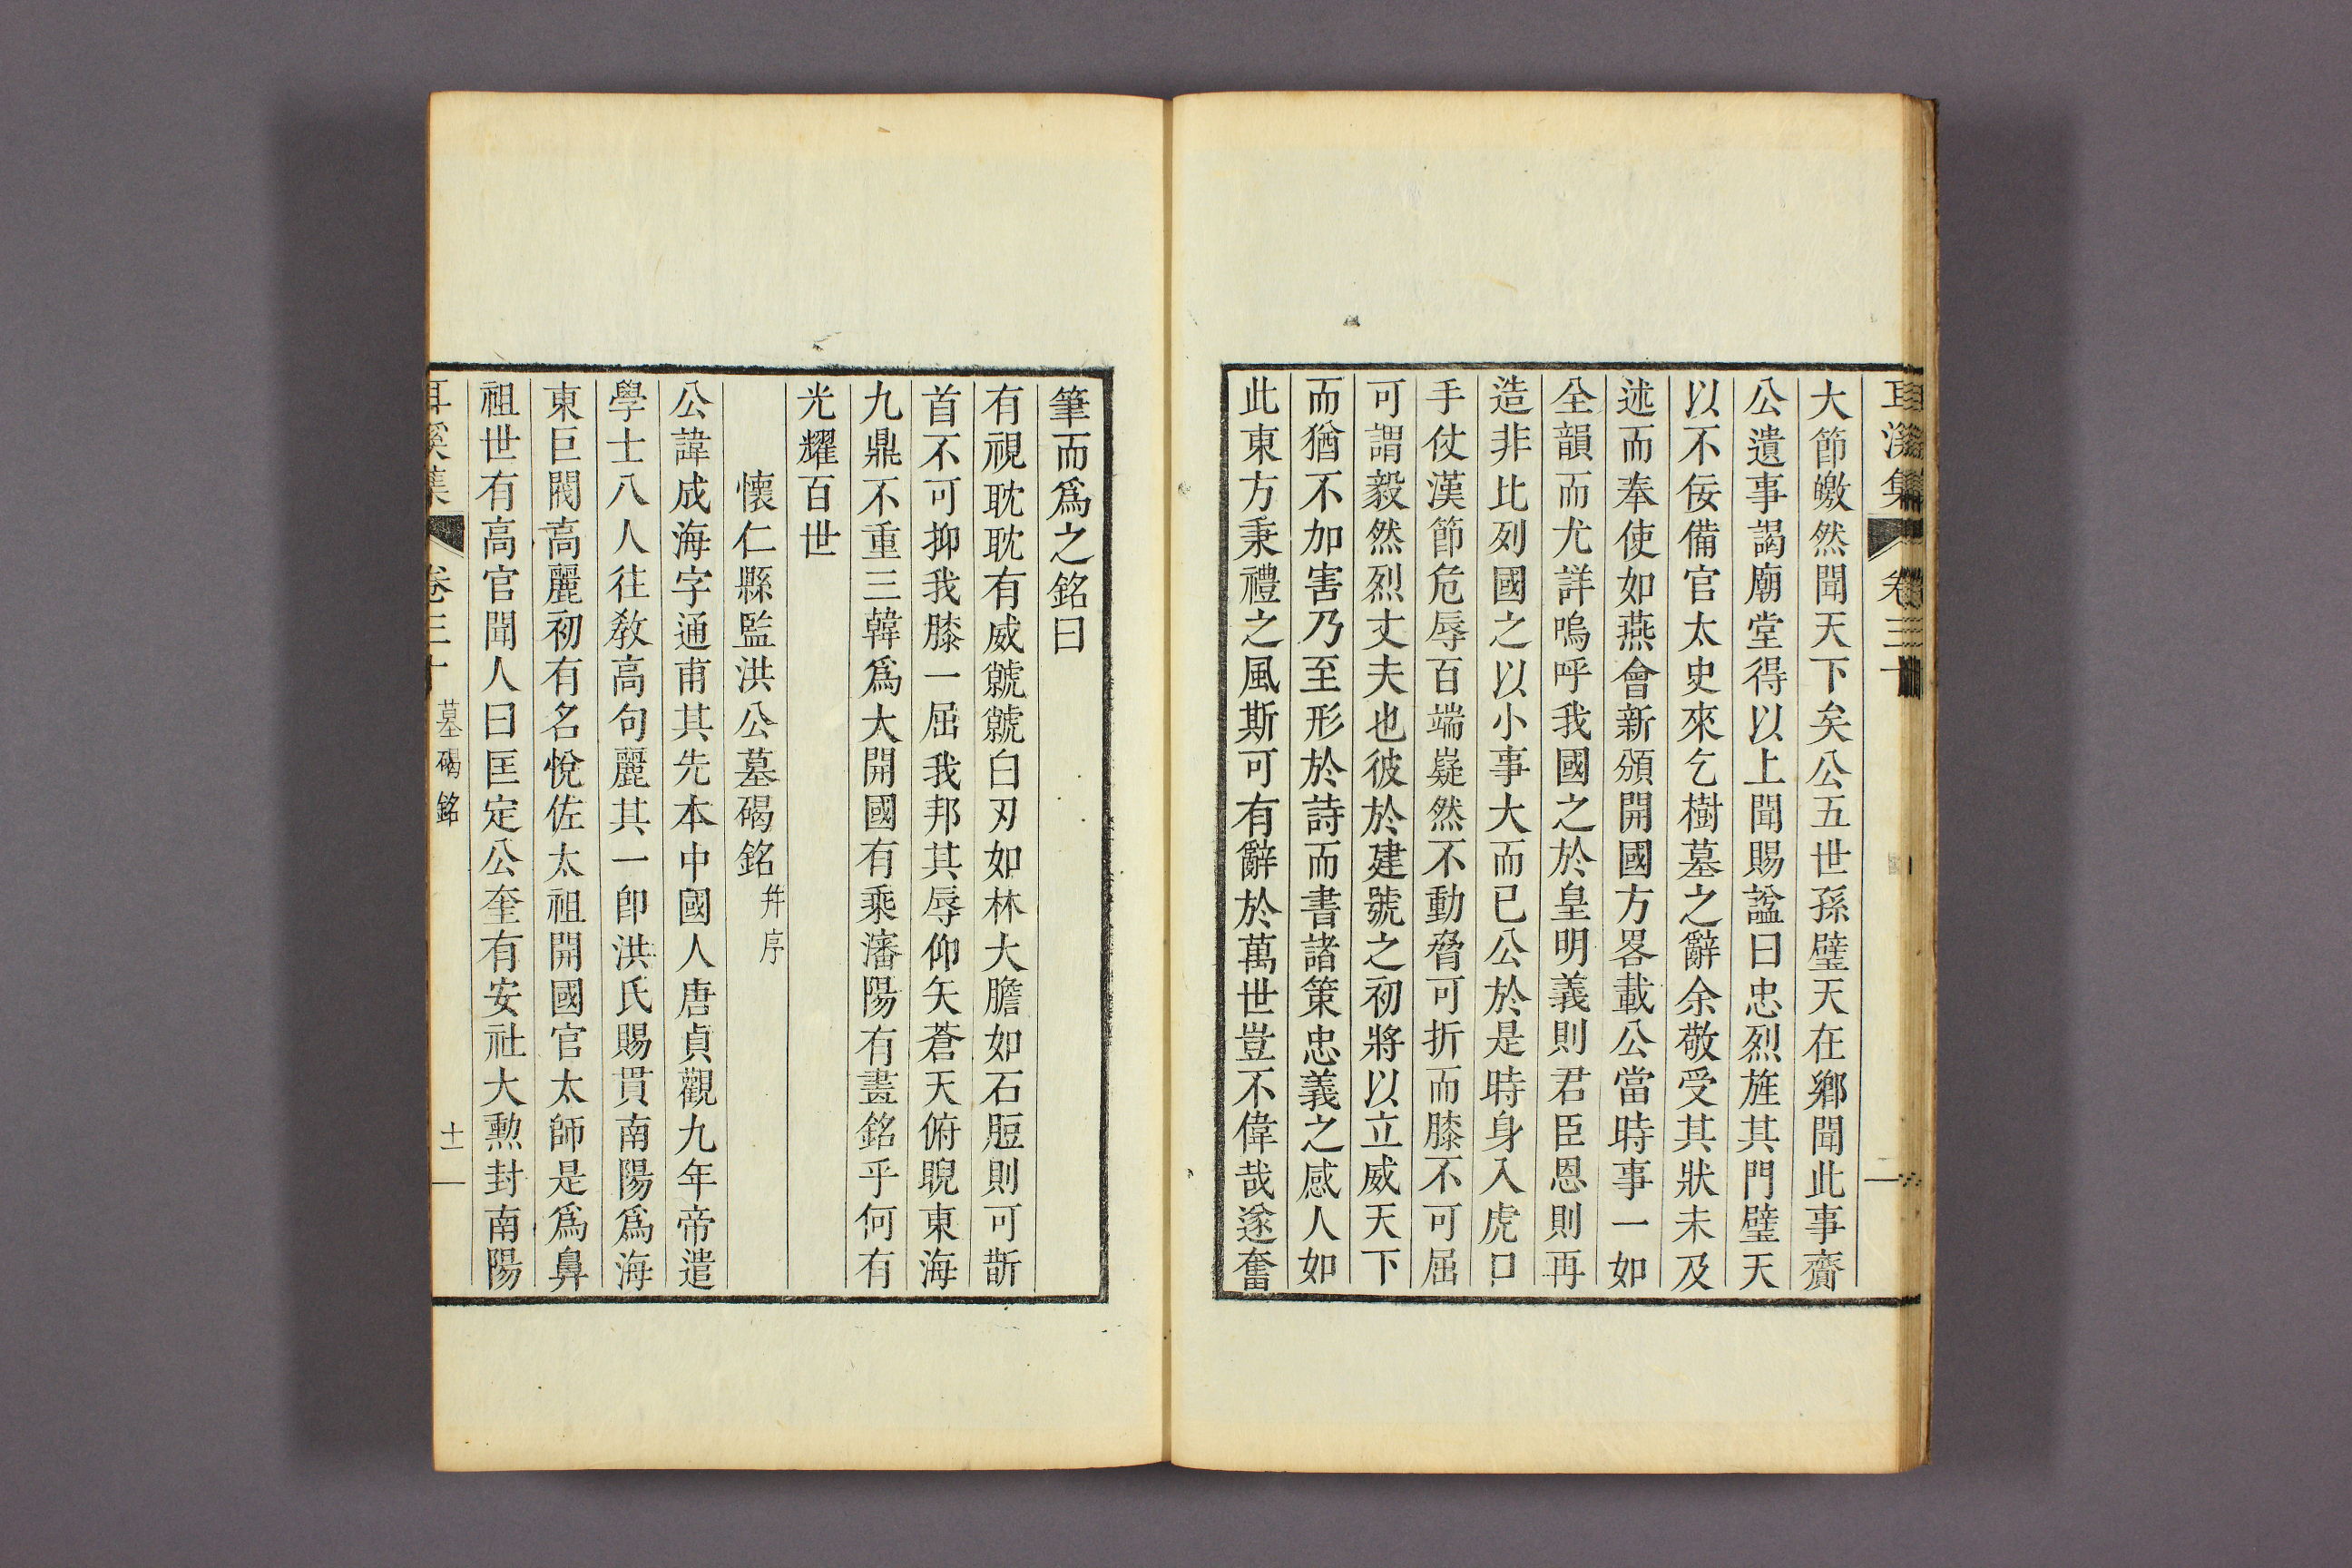 耳溪集 卷三十
大節皦然聞天下矣公五世孫璧天在鄕聞此事齎
公遺事謁廟堂得以上聞賜諡曰忠烈旌其門璧天
以不佞備官太史來乞樹墓之辭余敬受其狀未及
述而奉使如燕會新頒開國方畧載公當時事一如
全韻而尤詳嗚呼我國之於皇明義則君臣恩則再
造非比列國之以小事大而已公於是時身入虎口
手仗漢節危辱百端嶷然不動脅可折而膝不可屈
可謂毅然烈丈夫也彼於建號之初將以立威天下
而猶不加害乃至形於詩而書諸策忠義之感人如
此東方秉禮之風斯可有辭於萬世豈不偉哉遂奮
筆而爲之銘曰
有視耽耽有威虩虩白刃如林大膽如石脰則可斮
首不可抑我膝一屈我邦其辱仰矢蒼天俯睨東海
九鼎不重三韓爲大開國有乘瀋陽有畫銘乎何有
光耀百世
懷仁縣監洪公墓碣銘 幷序
公諱成海字通甫其先本中國人唐貞觀九年帝遣
學士八人往敎高句麗其一卽洪氏賜貫南陽爲海
東巨閥高麗初有名悅佐太祖開國官太師是爲鼻
祖世有高官聞人曰匡定公奎有安社大勲封南陽
耳溪集 卷三十 墓碣銘 十一